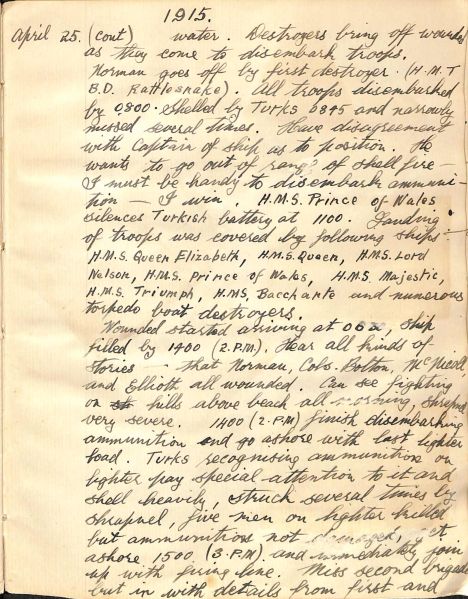 1915.
April 25. (cont) water. Destroyers bring off wounded
as they come to disembark troops.
Norman goes off by first destroyer. (H.M.T
B.D. Rattlesnake). All troops disembarked
by 0800. Shelled by Turks 0845 and narrowly
missed several times. Have disagreement
with Captain of ship as to position. He
wants to go out of range of shell fire —
I must be handy to disembark ammuni-
tion — I win. H.M.S. Prince of Wales
silences Turkish battery at 1100. Landing
of troops was covered by following ships:-
H.M.S. Queen Elizabeth, H.M.S. Queen, H.M.S. Lord
Nelson, H.M.S. Prince of Wales, H.M.S. Majestic,
H.M.S. Triumph, H.M.S. Bacchante and numerous
torpedo boat destroyers.
Wounded started arriving at ship
filled by 1400 (2.P.M). Hear all kinds of
stories — that Norman, Cols. Bolton, McNicoll
and Elliott all wounded. Can see fighting
on hills above beach all morning, shrapnel
very severe. 1400 (2.P.M) finish disembarking
ammunition and go ashore with last lighter
load. Turks recognising ammunition on
lighter pay special attention to it and
shell heavily, struck several times by
shrapnel, five men on lighter killed
but ammunition not damaged, get
ashore 1500 (3.P.M) and immediately join
up with firing line. Miss second brigade
but in with details from first and